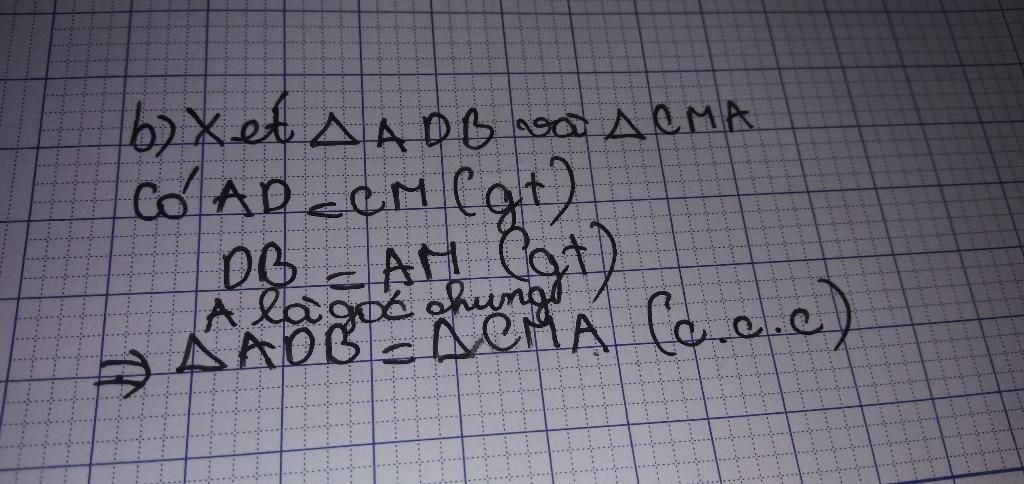 b) Xét △ ADB và △ CMA
Có AD = CM (gt)
DB = AM (gt)
A là góc chung
⇒ △ ADB = △ CMA (c.c.c)